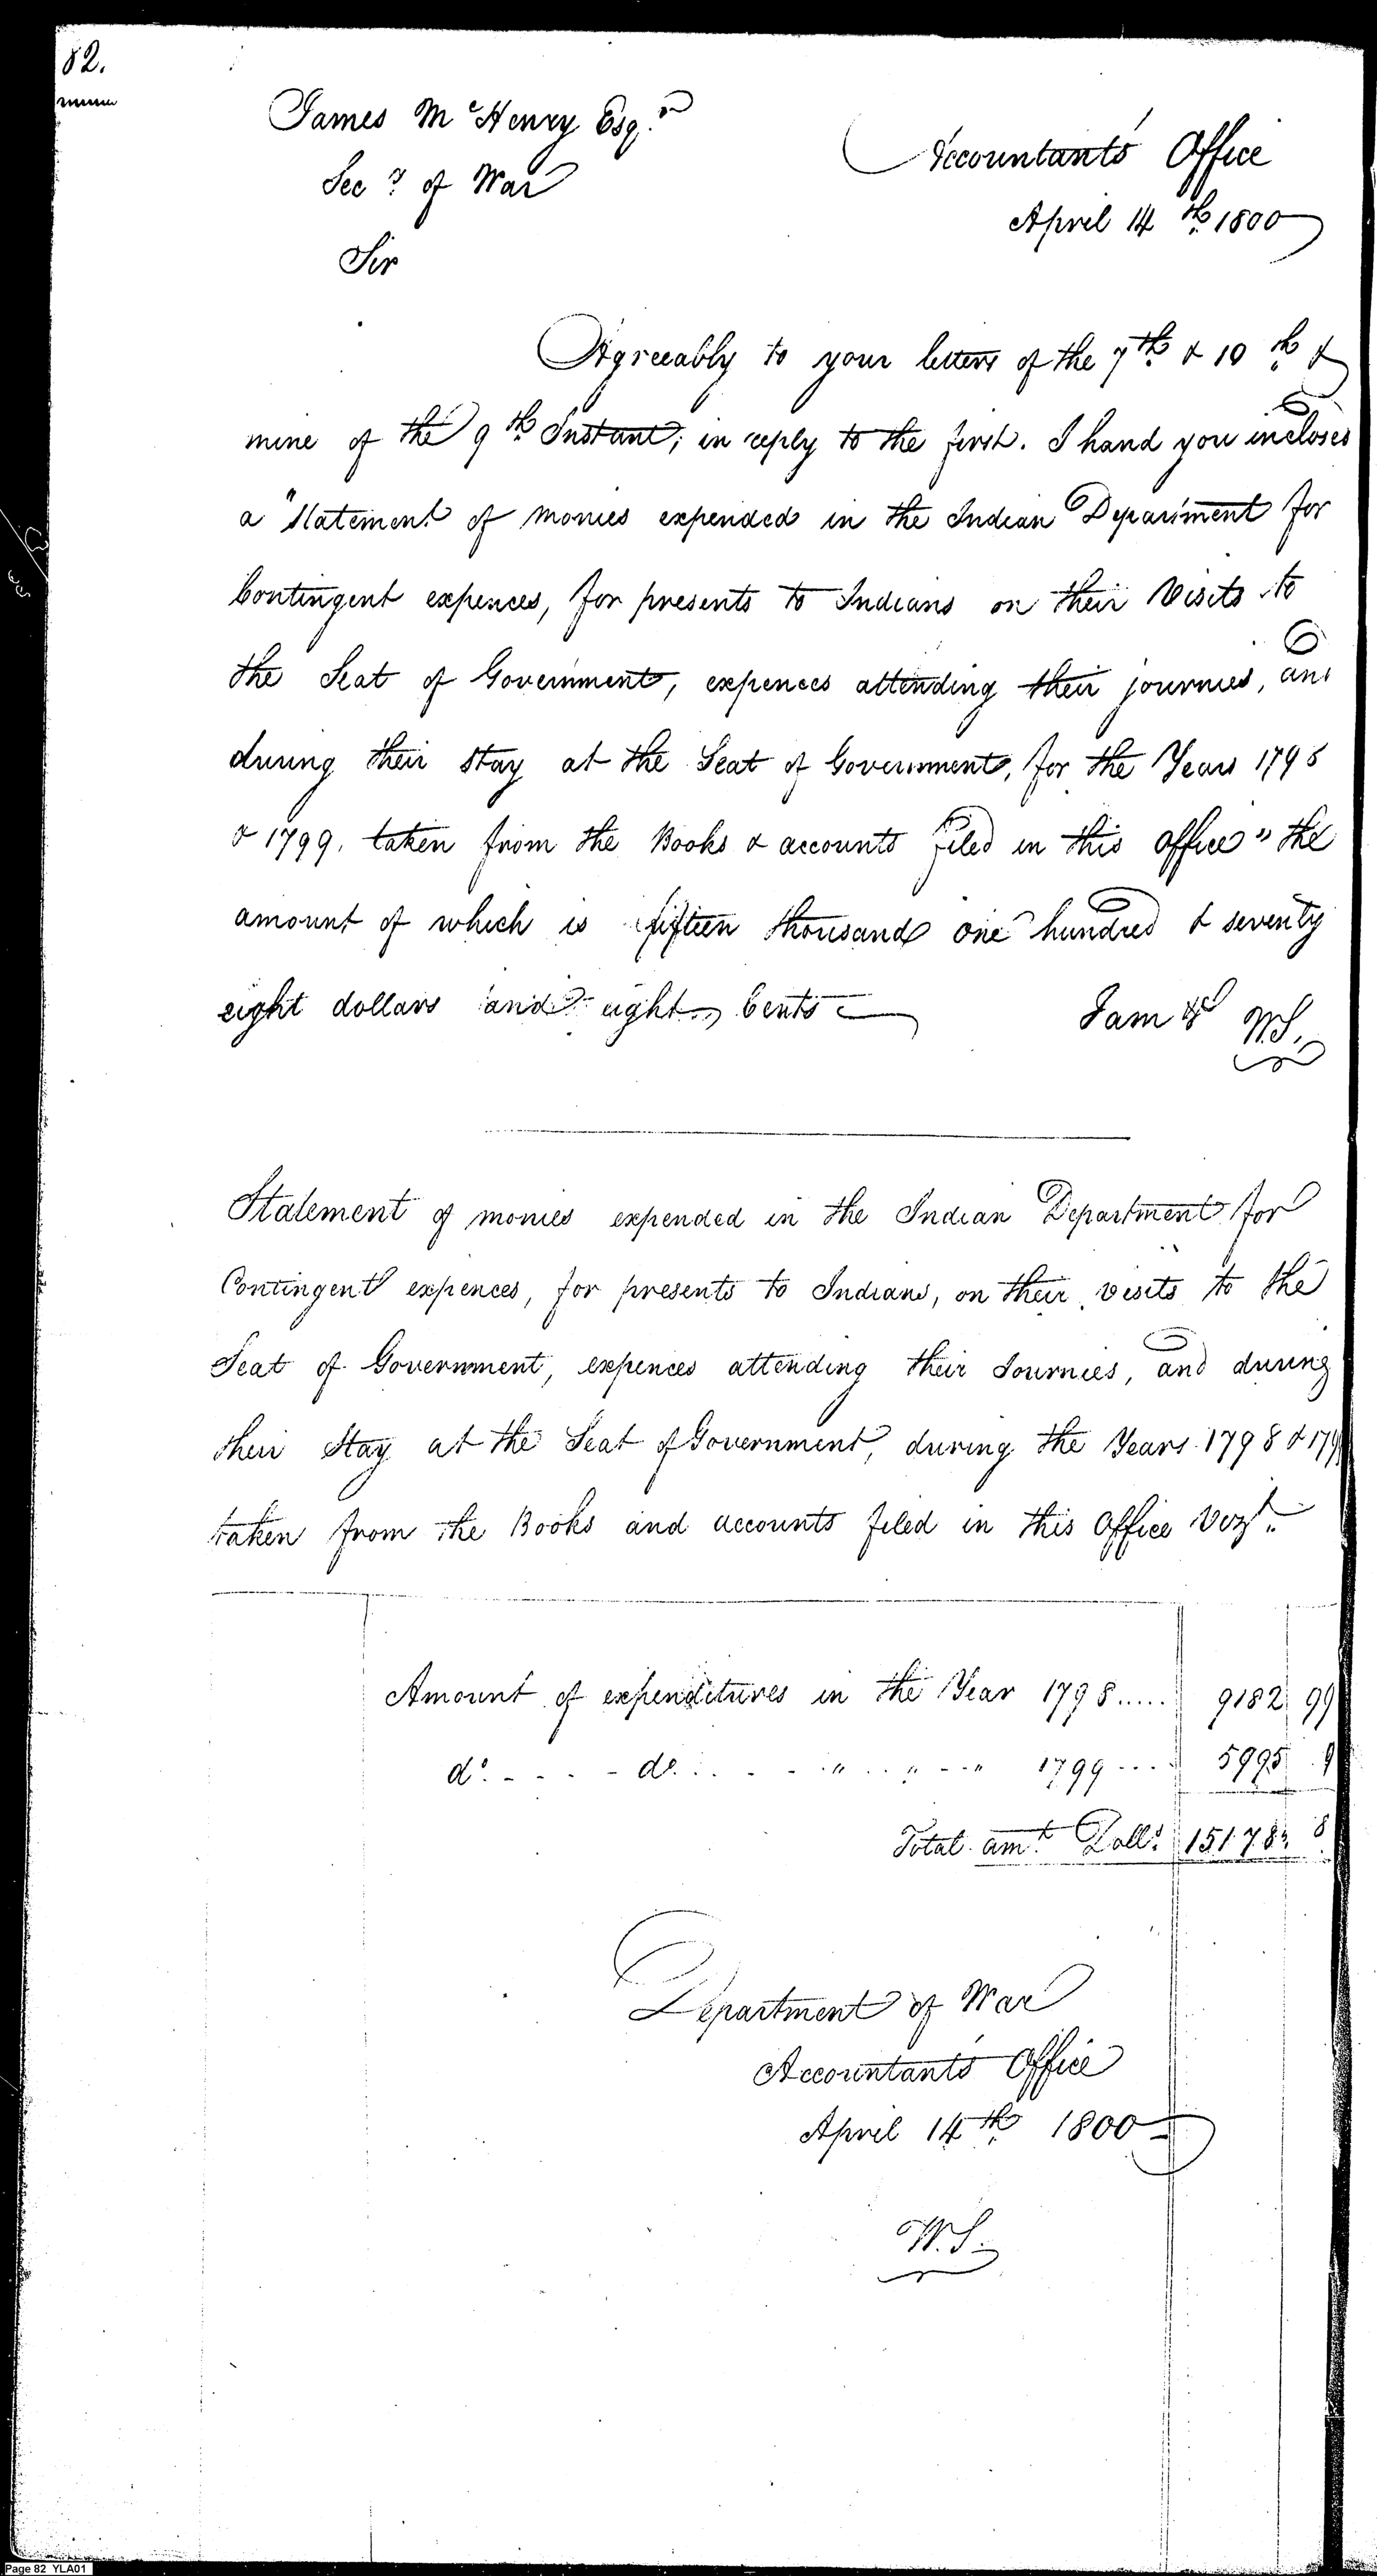 82.
James McHenry Esqr
Secy of War
Accountants Office
April 14th 1800
Sir
Agreeably to your letters of the 7th & 10th &
mine of the 9th Instant; in reply to the first. I hand you inclosed
a "Statement of monies expended in the Indian Department for
Contingent expences, for presents to Indians on their Visits to
the Seat of Government, expences attending their journies, and
during their stay at the Seat of Government, for the Years 1798
& 1799, taken from the Books & accounts filed in this office" the
amount of which is fifteen thousand one hundred & seventy
eight dollars and eight Cents
I am &c W.S.
Statement of monies expended in the Indian Department for
Contingent expences, for presents to Indians, on their visits to the
Seat of Government, expences attending their Journies, and during
their Stay at the Seat of Government, during the Years 1798 & 179
taken from the Books and accounts filed in this Office Vizt.
Amount of expenditures in the Year 1798..... 9182 99
do. - - - - do. . . - - " . . " - - " 1799 .... 5995 9
Total amt. Dolls. 15178 8
Department of War
Accountants Office
April 14th 1800
W.S.
Page 82 YLA01